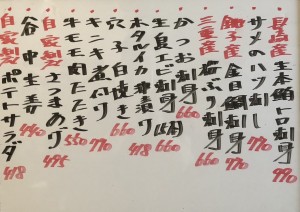 長崎産 生本鮪トロ刺身 990
サメのハツ刺し 770
銚子産 金目鯛刺身 770
三重産 塩ぶり刺身 660
かつお刺身 660
生白エビ 660
ホタルイカ沖漬け 418
穴子白焼き 660
キンキ煮付け 770
牛モモ肉たたき 550
自家製 さつまあげ 495
谷中生姜 440
自家製 ポテトサラダ 418